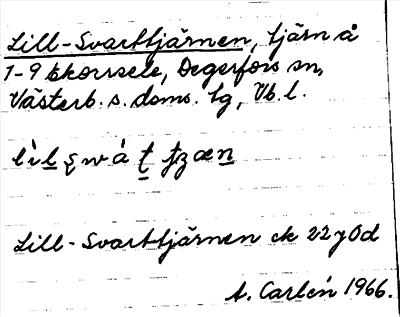 Lill-Svarttjärnen, tjärn å
1-9 Ekorrsele, Degerfors sn,
Västerb. s. doms. lg, Vb. l.
Lill-Svarttjärnen ek 22 y 0d
A. Carlén 1966.